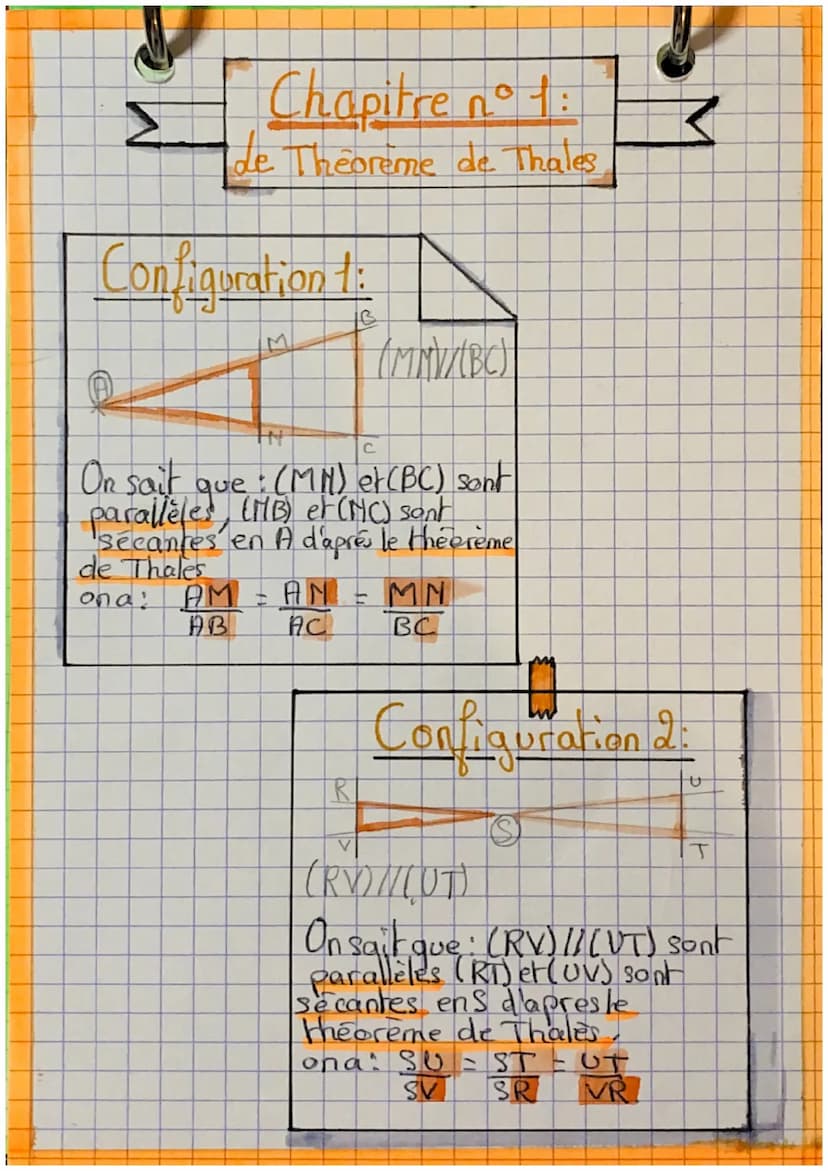 Chapitre n° 1:
de Théorème de Thales
Configuration 1:
B
M
(MN)//(BC)
A
N
C
On sait que : (MN) et (BC) sont
parallèles, (MB) et (NC) sont
sécantes en A d'aprés le théorème
de Thales
ona: AM/AB = AN/AC = MN/BC
Configuration 2:
R U
S
V T
(RV)//(UT)
On sait que : (RV)//(UT) sont
parallèles (RT) et (UV) sont
sécantes en S d'apres le
théorème de Thalès,
ona: SU/SV = ST/SR = UT/VR